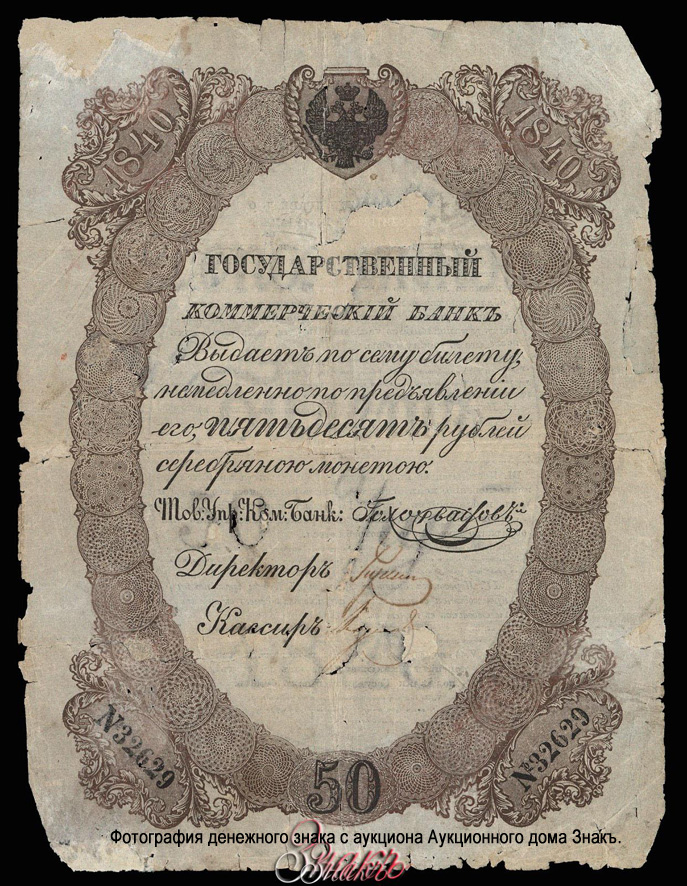 1840 1840
ГОСУДАРСТВЕННЫЙ
КОММЕРЧЕСКІЙ БАНКЪ
Выдаетъ по сему билету,
немедленно по предъявленіи
его, пятьдесятъ рублей
серебряною монетою.
Тов: Упр: Ком: Банк:
Директоръ
Кассиръ
№32629 №32629
50
Фотография денежного знака с аукциона Аукционного дома Знакъ.
Знакъ